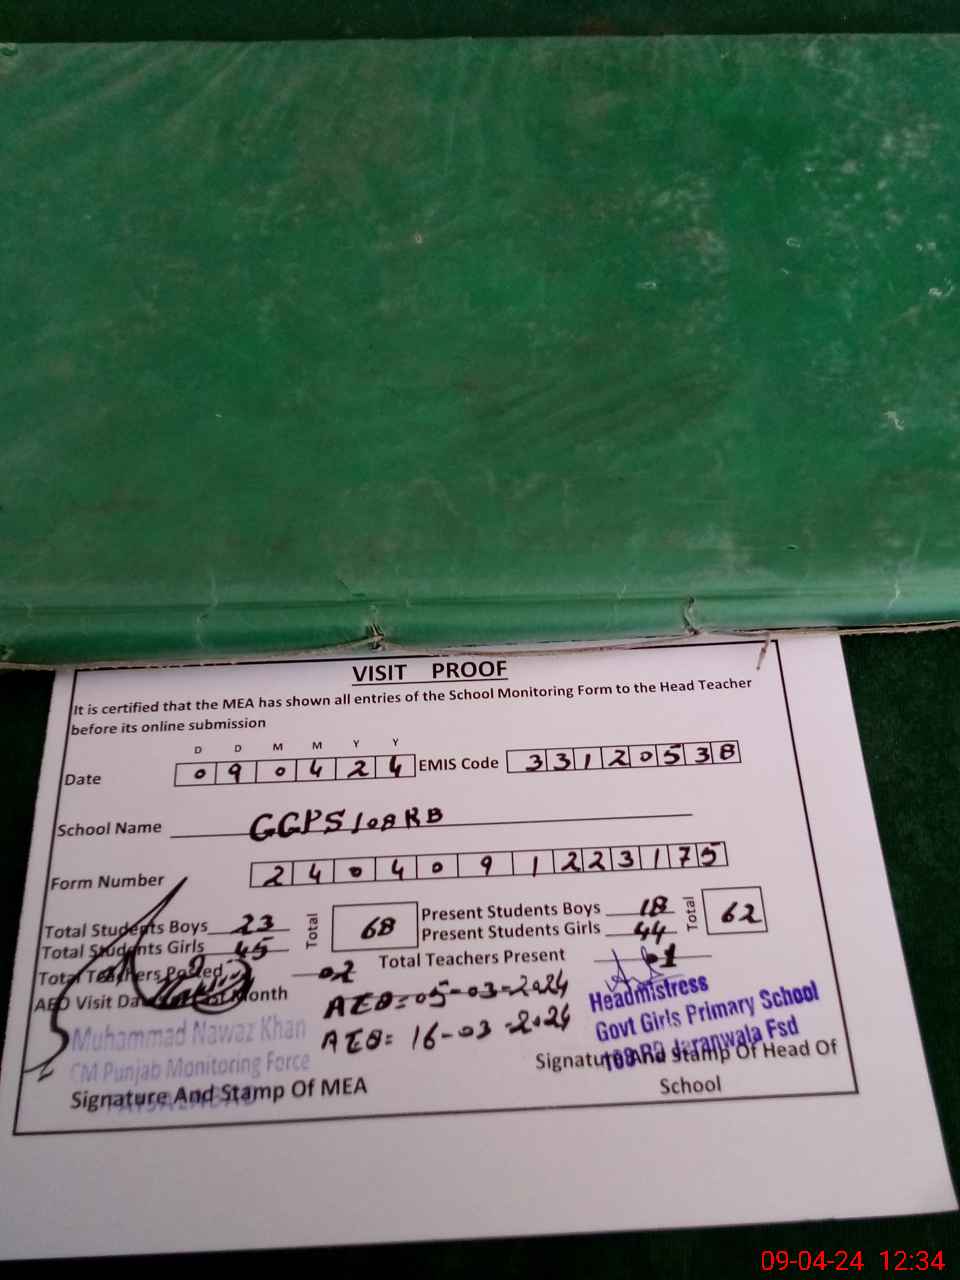 VISIT PROOF
It is certified that the MEA has shown all entries of the School Monitoring Form to the Head Teacher
before its online submission
D D M M Y Y
Date 0 9 0 4 2 4 EMIS Code 3 3 1 2 0 5 3 8
School Name GGPS 108 RB
Form Number 2 4 0 4 0 9 1 2 2 3 1 7 5
Total Students Boys 23 Total 68 Present Students Boys 18 Total 62
Total Students Girls 45 Present Students Girls 44
Total Teachers Posted 02 Total Teachers Present 01
AEO Visit Date Month AEO= 05-03-2024
AEO= 16-03-2024
Muhammad Nawaz Khan
CM Punjab Monitoring Force
Signature And Stamp Of MEA
Headmistress
Govt Girls Primary School
108 RB Jaranwala Fsd
Signature And Stamp Of Head Of
School
09-04-24 12:34